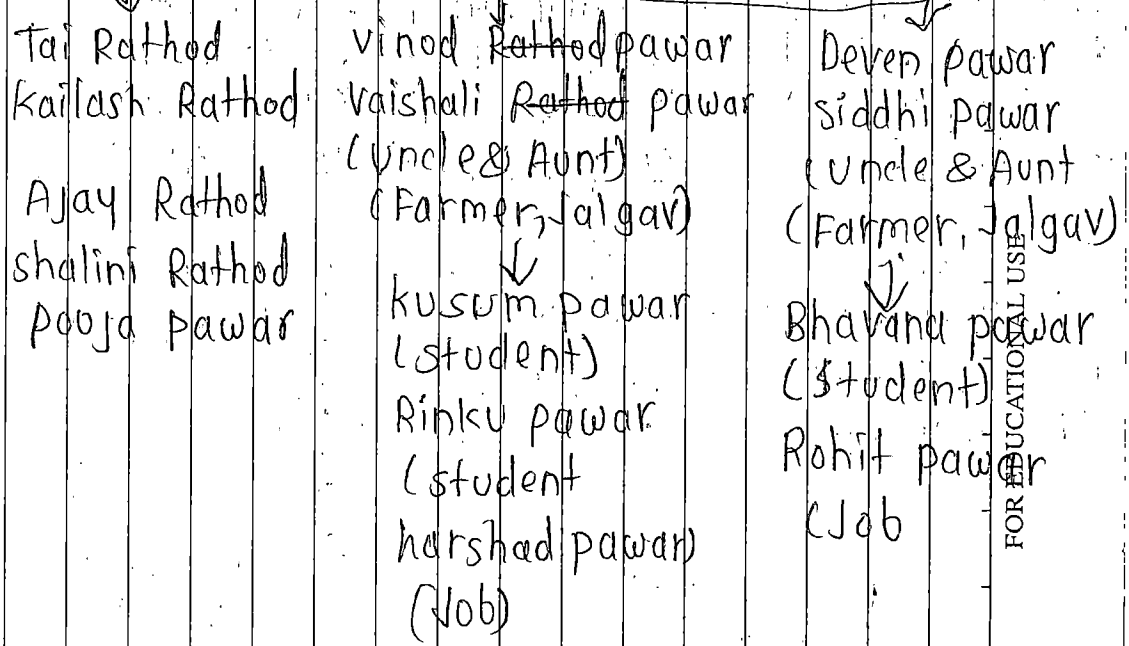 Tai Rathod
Kailash Rathod
Ajay Rathod
shalini Rathod
pooja pawar
vinod Rathod pawar
vaishali Rathod pawar
(Uncle & Aunt)
(Farmer, Jalgav)
kusum pawar
(student)
Rinku pawar
(student
harshad pawar)
(Job)
Deven pawar
siddhi pawar
(uncle & Aunt
(Farmer, Jalgav)
Bhavana pawar
(student)
Rohit pawar
(Job
FOR EDUCATIONAL USE